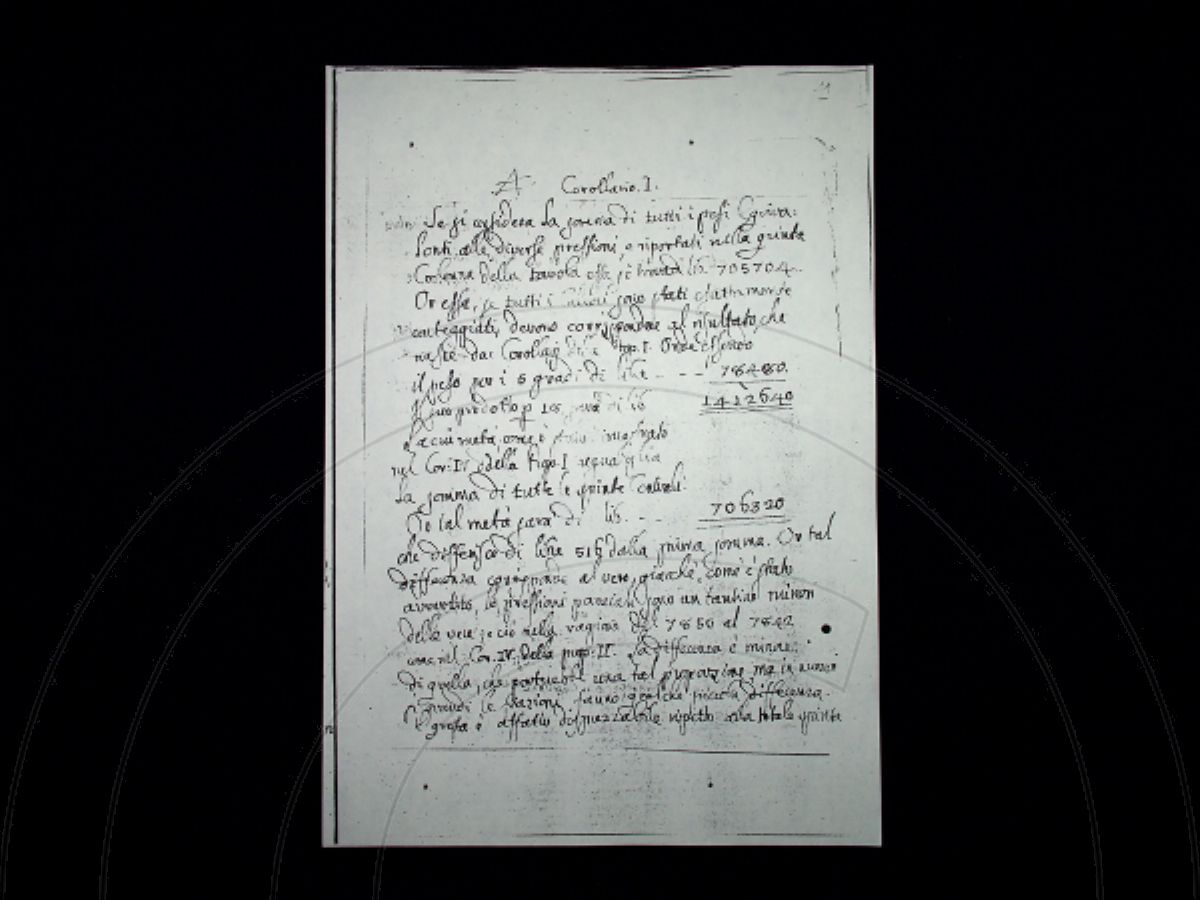 A Corollario. I.
Se si considera la somma di tutti i pesi Equiva:
lenti alle diverse pressioni, e riportati nella quinta
Colonna della tavola esse si trovera lib. 705704.
Or essa, se tutti i sono stati esattamente
conteggiati, devono corrispondere al risultato, che
nasce dai Corollarj prop. I. Onde essendo
il peso per i 5 gradi di libre - - - 78480.
Il suo prodotto p 18, sara di lib 1412640
La cui metà come è stato mostrato
nel Cor. IV della Prop. I
la somma di tutte le spinte
Or tal metà sara di lib. - - 706320
che differisce di libre 516 dalla prima somma. Or tal
differenza corrisponde al vero, giacchè, come è stato
avvertito, le pressioni parziali sono un tantino minori
delle vere, e ciò nella ragione del 7850 al 7842
come nel Cor. IV. della prop. II. La differenza è minore
di quella, che porterebbe una tal proporzione, ma in numeri
grandi le frazioni fanno qualche piccola differenza.
e questa è affatto disprezzabile rispetto alla totale spinta